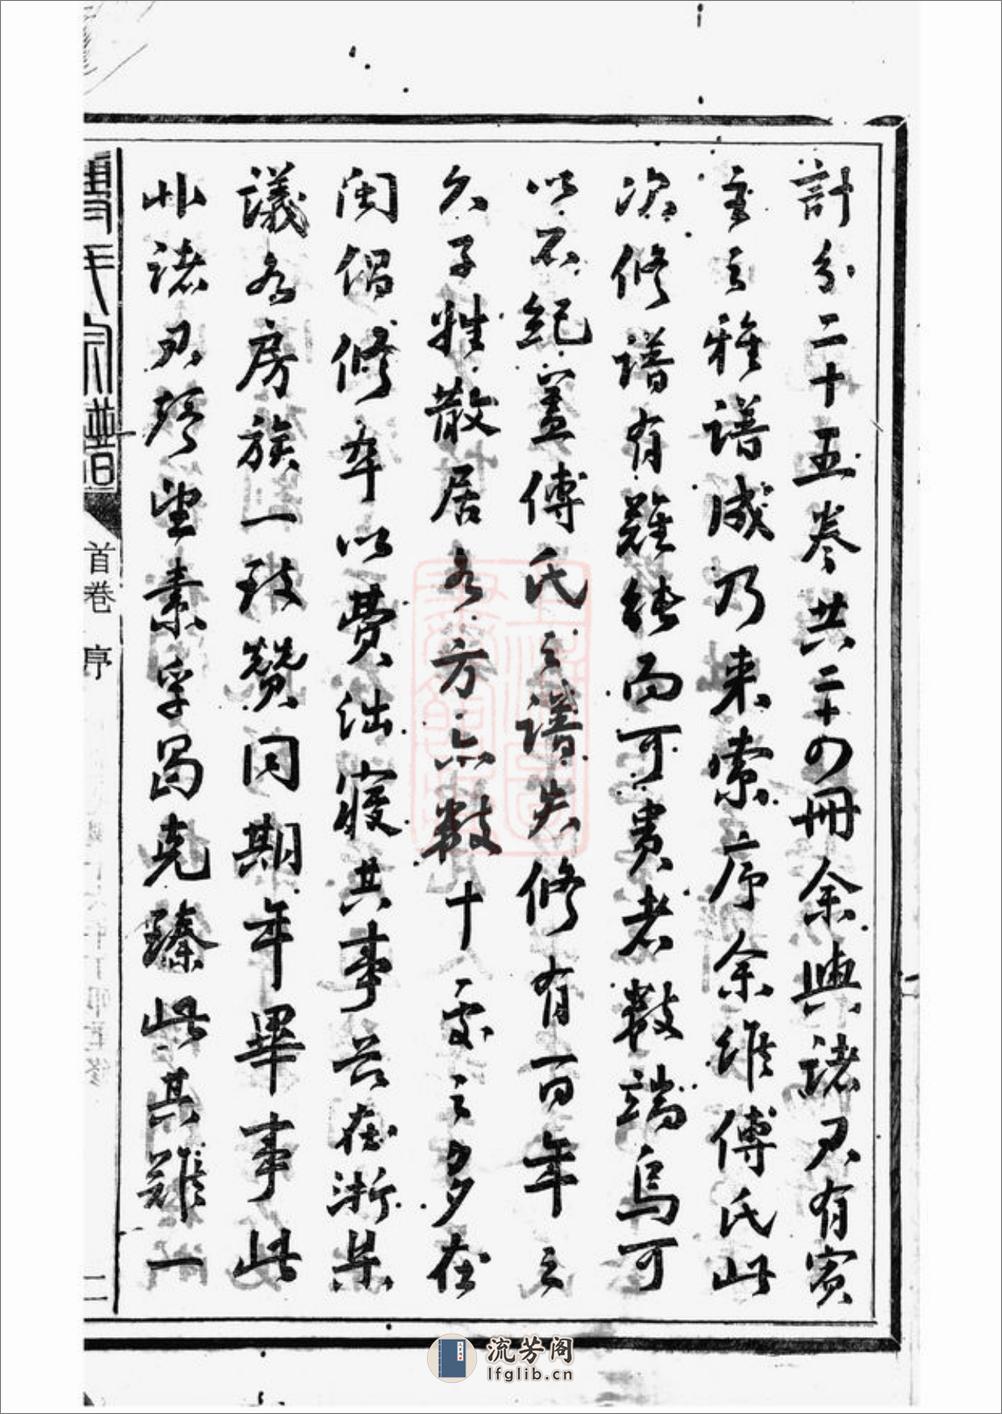 計分二十五卷共二十四冊余與諸君有賓
主之雅譜成乃來索序余維傅氏此
次修譜有難能而可貴者數端烏可
以不紀蓋傅氏之譜失修有百年之
久子姓散居各方亦數十處之多在
閩倡修年以費絀寢其事茲在浙杲
議各房族一致贊同期年畢事此
非諸君聲望素孚曷克臻此其難一
傅氏家譜
首卷 序
二
流芳阁
lfglib.cn